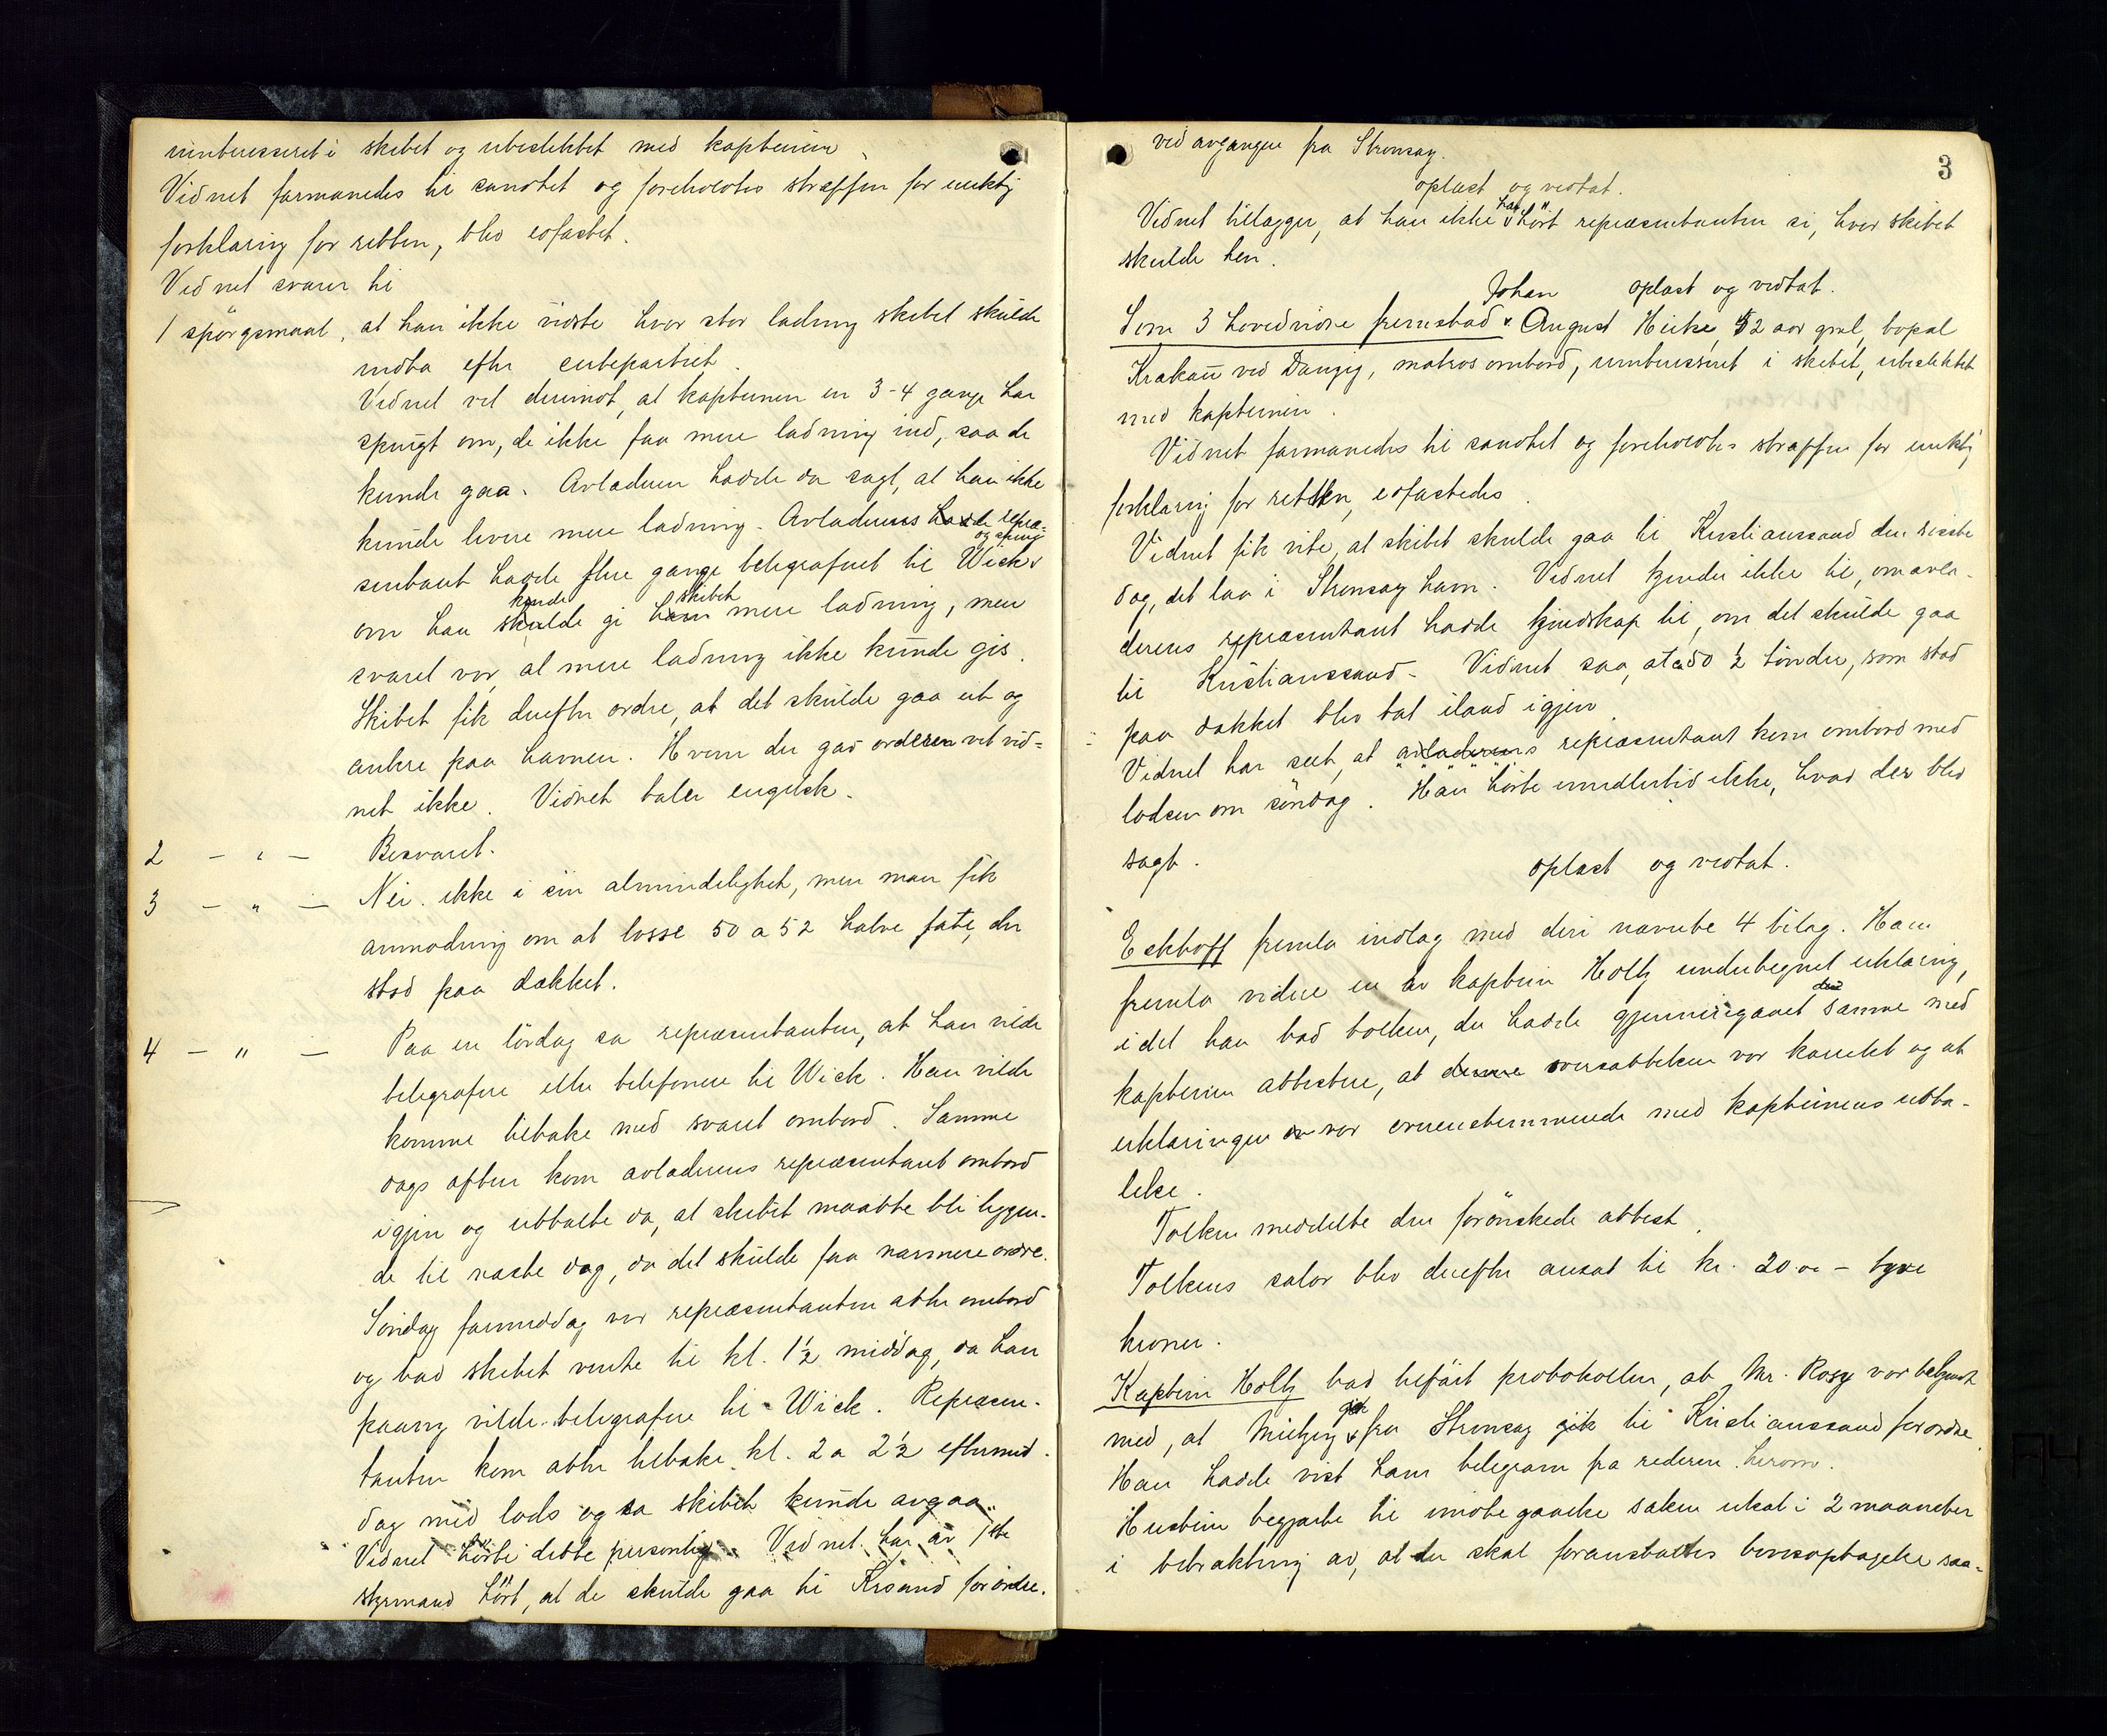 uinteresseret i skibet og ubeslektet med kapteinen
Vidnet formanedes til sandhet og foreholdtes straffen for uriktig
forklaring for retten, blev edfæstet.
Vidnet svarer til
1 spörgsmaal, at han ikke vidste hvor stor ladning skibet skulde
indta efter certepartiet.
Vidnet vet derimot, at kapteinen en 3-4 gange har
spurgt om, de ikke faa mere ladning ind, saa de
kunde gaa. Avladeren hadde da sagt, at han ikke
kunde levere mere ladning. Avladerens hadde repræ-
sentant hadde flere gange telegrafert til Wick og spurgt
om han skulde kunde gi ham skibet mere ladning, men
svaret var, at mere ladning ikke kunde gis.
Skibet fik derefter ordre, at det skulde gaa ut og
ankre paa havnen. Hvem der gav orderen vet vid-
net ikke. Vidnet taler engelsk.
2 - " - Besvaret.
3 - " - Nei. ikke i sin almindelighet, men man fik
anmodning om at losse 50 a 52 halve fate, der
stod paa dækket.
4 - " - Paa en lördag sa repræsentanten, at han vilde
telegrafere eller telefonere til Wick. Han vilde
komme tilbake med svaret ombord. Samme
dags aften kom avladerens repræsentant ombord
igjen og uttalte da, at skibet maatte bli liggen-
de til næste dag, da det skulde faa nærmere ordre.
Söndag formiddag var repræsentanten atter ombord
og bad skibet vente til kl. 1½ middag, da han
paany vilde telegrafere til Wick. Repræsen-
tanten kom atter tilbake kl. 2 a 2½ eftermid-
dag med lods og sa skibet kunde avgaa.
Vidnet hörte dette personlig. Vidnet har av 1ste
styrmand hört, at de skulde gaa til Krsand for ordre.
3
ved avgangen fra Stronsay.
oplæst og vedtat.
Vidnet tilægger, at han ikke har hört repræsentanten si, hvor skibet
skulde hen.
oplæst og vedtat.
Som 3 hovedvidne fremstod Johan August Hicke, 52 aar gml, bopæl
Krakau ved Danzig, matros ombord, uinteresseret i skibet, ubeslektet
med kapteinen.
Vidnet formanedes til sandhet og foreholdtes straffen for uriktig
forklaring for retten, edfæstedes.
Vidnet fik vite, at skibet skulde gaa til Kristianssand den sidste
dag, det laa i Stronsay havn. Vidnet kjender ikke til, om avla-
derens repræsentant hadde kjendskap til, om det skulde gaa
til Kristianssand. Vidnet saa, at ca 50 ½ tönder, som stod
paa dækket blev tat iland igjen.
Vidnet har seet, at avladerens repræsentant kom ombord med
lodsen om söndag. Han hörte imidlertid ikke, hvad der blev
sagt.
oplæst og vedtat.
Eckhoff fremla indlæg med deri nævnte 4 bilag. Han
fremla videre en av kaptein Holtz undertegnet erklæring,
idet han bad tolken, der hadde gjennemgaaet den samme med
kapteinen attestere, at denne oversættelsen var korrekt og at
erklæringen var overensstemmende med kapteinens utta-
lelse.
Tolken meddelte den forönskede attest.
Tolkens salær blev derefter ansat til kr. 20.00 - tyve
kroner.
Kaptein Holtz bad tilfört protokollen, at Mr. Rosy var bekjendt
med, at Mietzing gik fra Stronsay gik til Kristianssand for ordre.
Han hadde vist ham telegram fra rederen herom.
Husteen begjærte til imötegaaelse saken utsat i 2 maaneder
i betraktning av, at der skal foranstaltes bevisoptagelse saa-